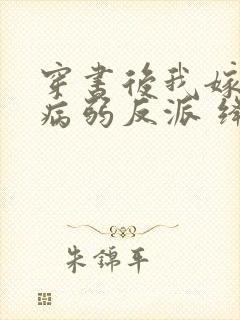 穿書後我嫁
病弱反派
朱錦平